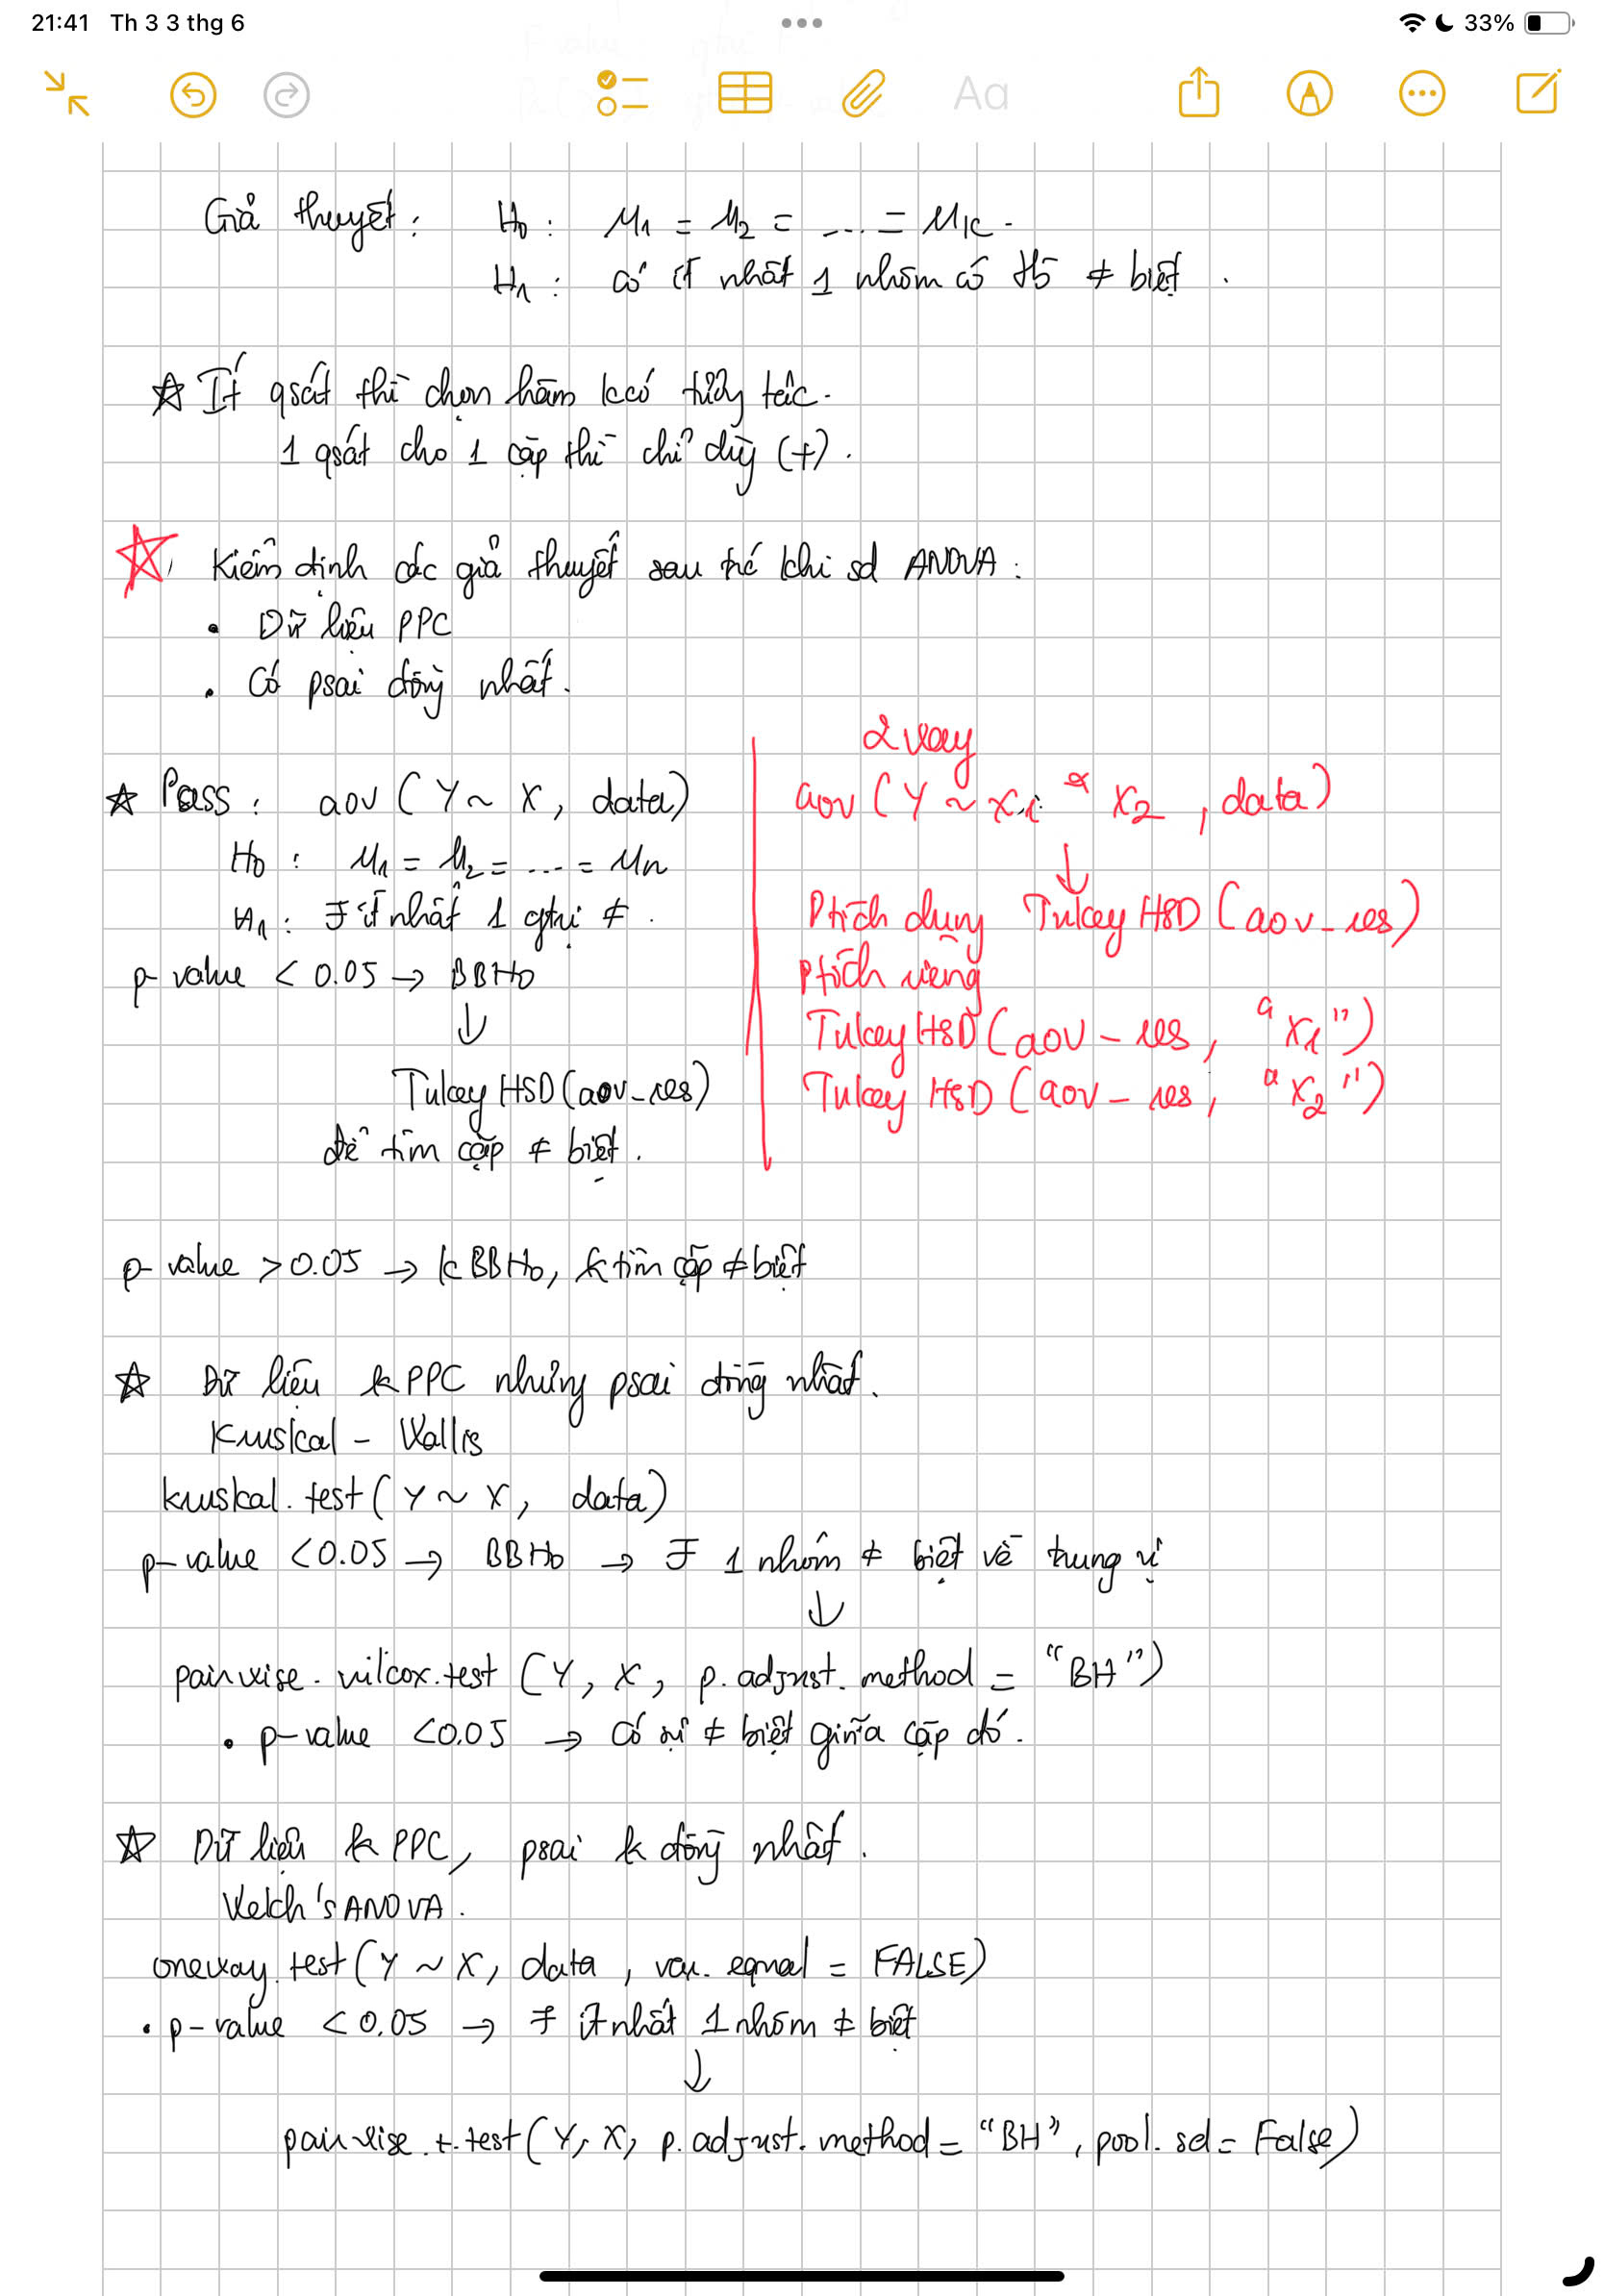 21:41 Th 3 3 thg 6
33%
Aa
Giả thuyết: H₀ : μ₁ = μ₂ = .... = μk.
H₁ : có ít nhất 1 nhóm có ≠ biệt.
☆ Ít qsát thì chọn hàm k có tương tác.
1 qsát cho 1 cặp thì chỉ dùng (+).
☆ Kiểm định các giả thuyết sau trc khi sd ANOVA:
• Dữ liệu PPC
• Có psai đồng nhất.
☆ Pass: aov (Y ~ X, data)
H₀ : μ₁ = μ₂ = .... = μn
H₁ : ∃ ít nhất 1 gtrị ≠.
p-value < 0.05 → BBH₀
↓
TukeyHSD(aov_res)
để tìm cặp ≠ biệt.
2 way
aov (Y ~ X₁ * X₂, data)
↓
Ptích chung TukeyHSD (aov_res)
Ptích riêng
TukeyHSD(aov_res, "X₁")
TukeyHSD (aov_res, "X₂")
p-value > 0.05 → k BBH₀, k tìm cặp ≠ biệt
☆ Dữ liệu k PPC nhưng psai đồng nhất.
Kruskal - Wallis
kruskal.test(Y ~ X, data)
p-value < 0.05 → BBH₀ → ∃ 1 nhóm ≠ biệt về trung vị
↓
pairwise.wilcox.test (Y, X, p.adjust.method = "BH")
• p-value < 0.05 → Có sự ≠ biệt giữa cặp đó.
☆ Dữ liệu k PPC, psai k đồng nhất.
Welch's ANOVA.
oneway.test(Y ~ X, data, var.equal = FALSE)
• p-value < 0.05 → ∃ ít nhất 1 nhóm ≠ biệt
↓
pairwise.t.test(Y, X, p.adjust.method = "BH", pool.sd = False)